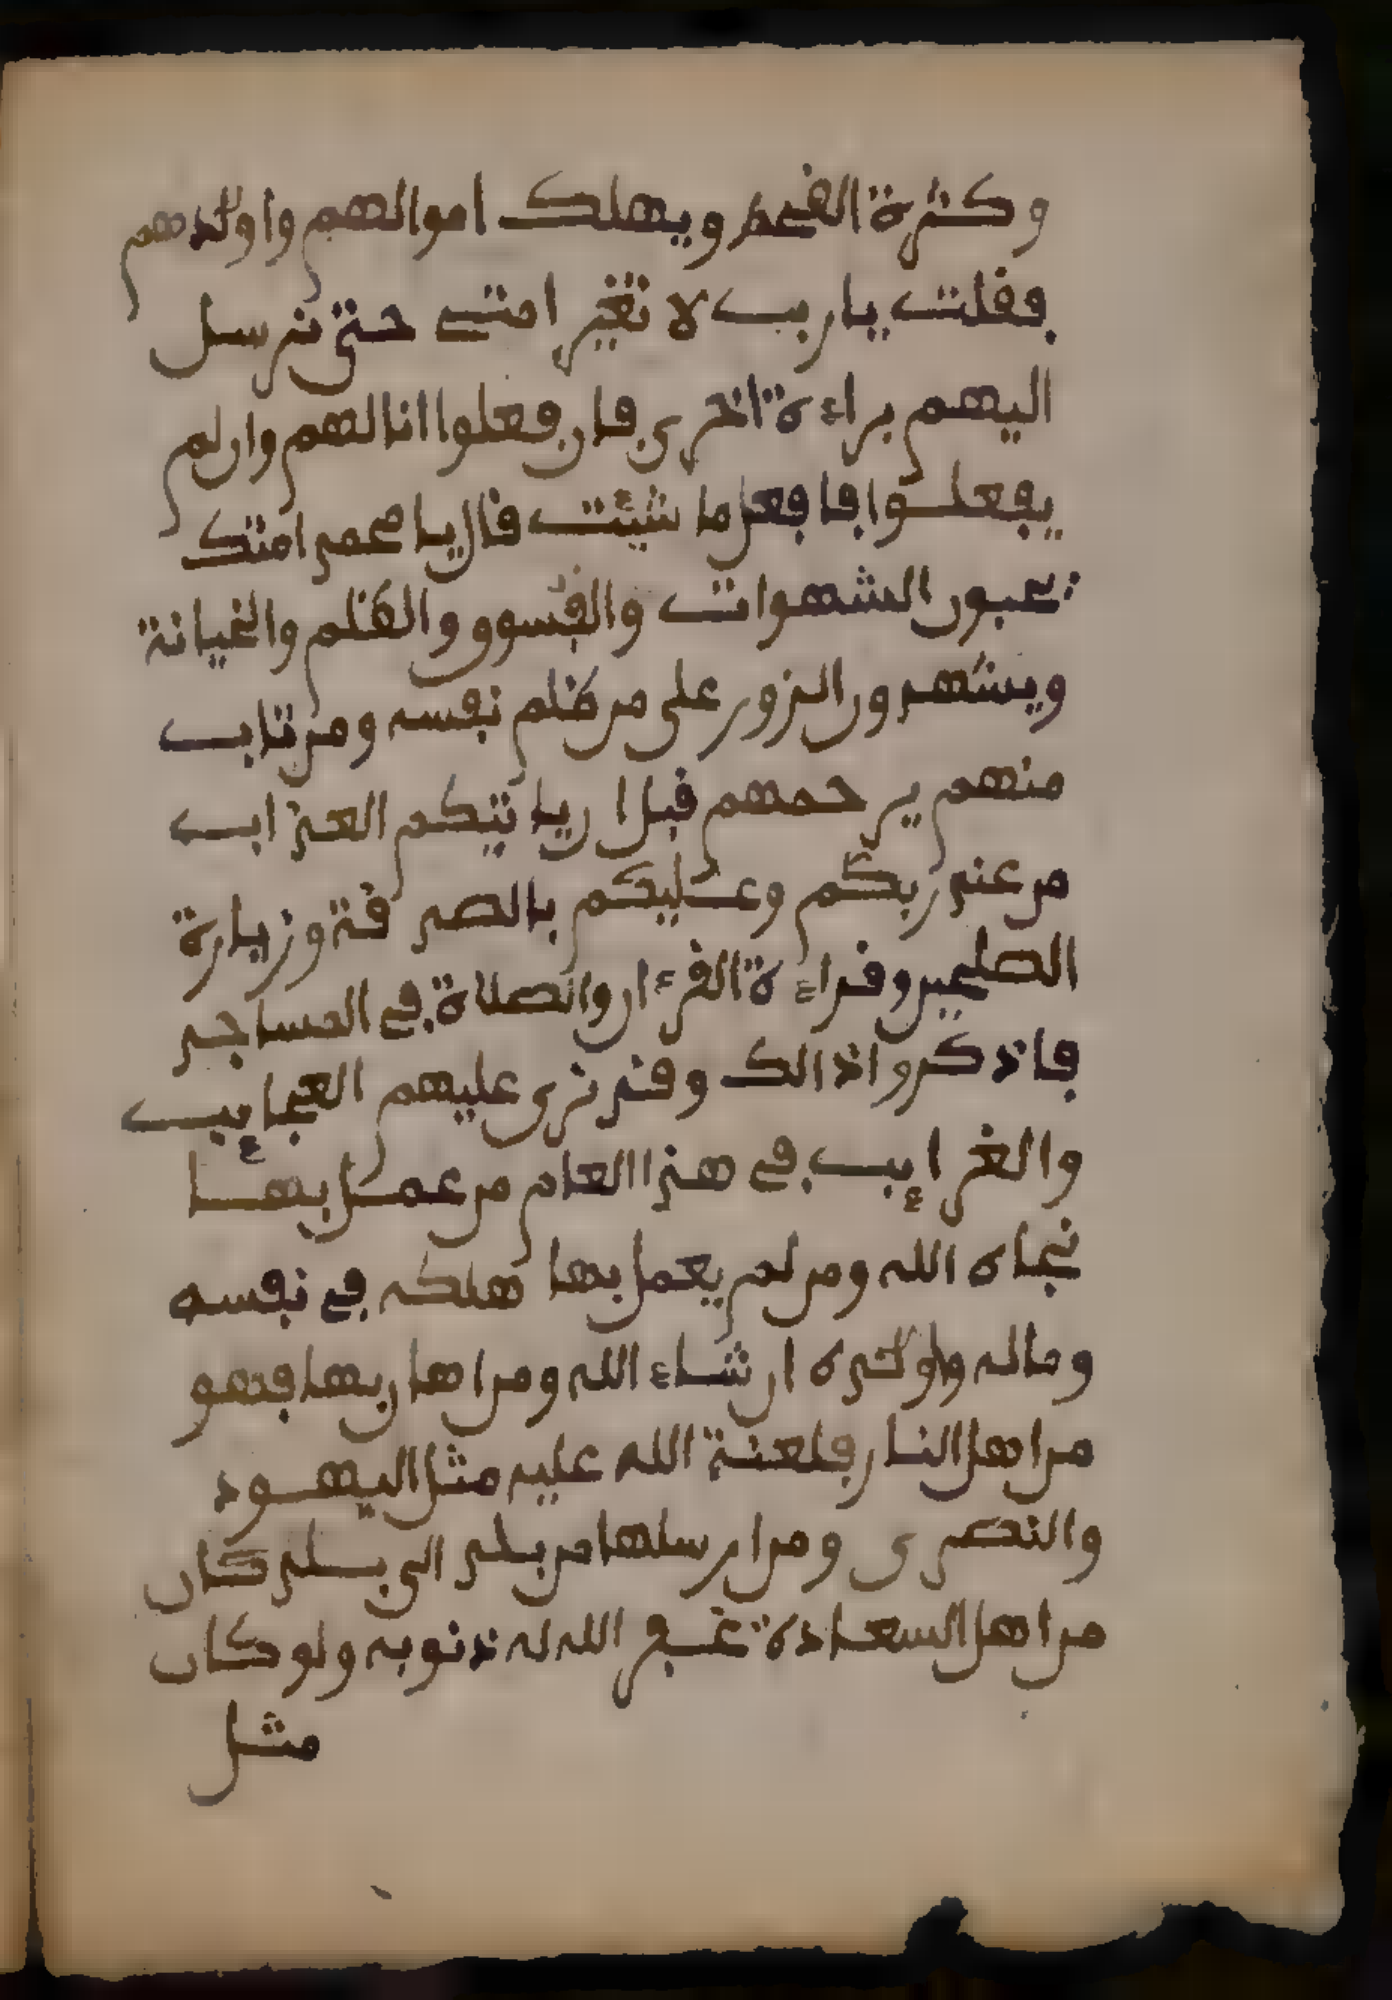 وكثرة القحط ويهلك اموالهم واولدهم
فقلت يارب لا تغير امتي حتى نرسل
اليهم براءة اخرى فان فعلوا انا لهم وان لم
يفعلوا فافعل ما شيئت قال يا محمد امتك
يحبون الشهوات والفسوق والظلم والخيانة
ويشهدون الزور على من ظلم نفسه ومن تاب
منهم يرحمهم قبل ان ياتيكم العذاب
من عند ربكم وعليكم بالصدقة وزيارة
الصلحين وقراءة القرءان والصلاة في المساجد
فاذكروا ذالك وقد نرى عليهم العجايب
والغرايب في هذا العام من عمل بها
نجاه الله ومن لم يعمل بها هلكه في نفسه
وماله واولده ان شاء الله ومن اهان بها فهو
من اهل النار فلعنة الله عليه مثل اليهود
والنصرى ومن ارسلها من بلد الى بلد كان
من اهل السعادة غفر الله له ذنوبه ولو كان
مثل